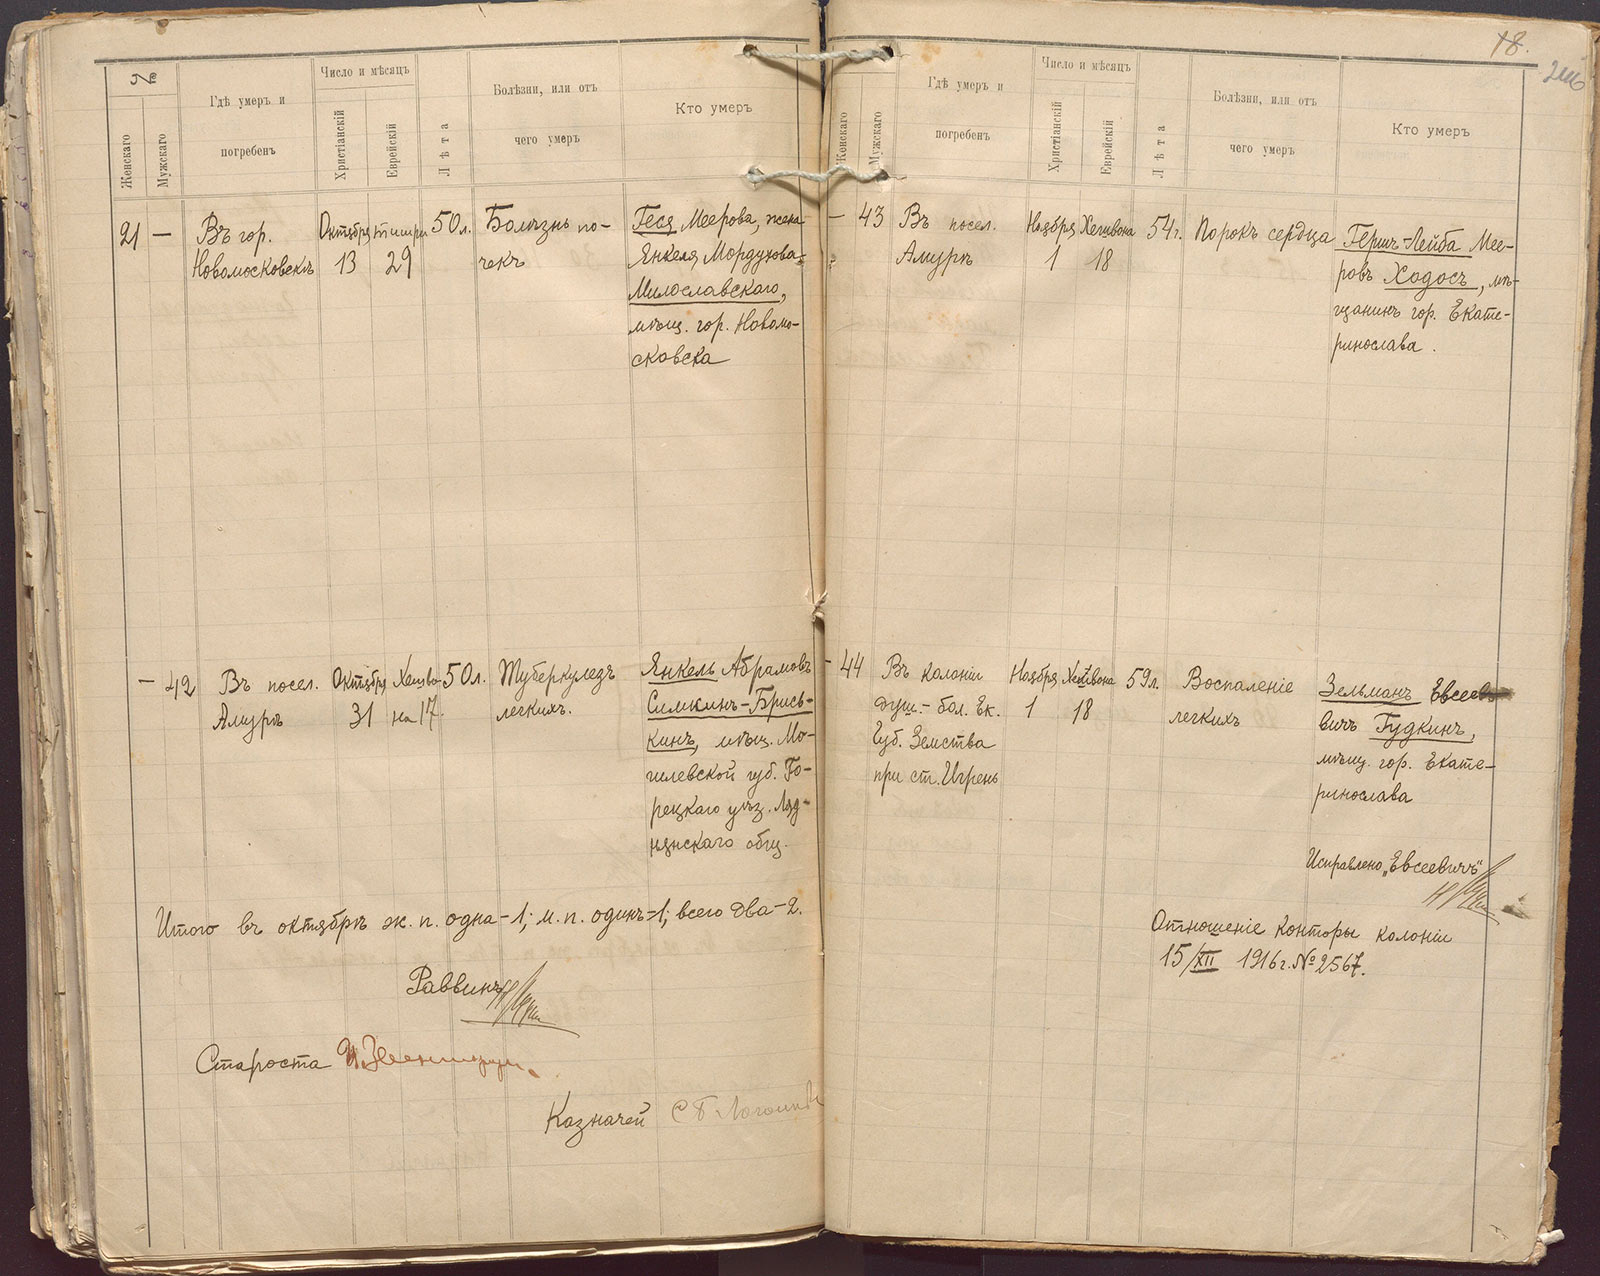 №
Женскаго
Мужскаго
Гдѣ умеръ и
погребенъ
Число и мѣсяцъ
Христіанскій
Еврейскій
Лѣта
Болѣзни, или отъ
чего умеръ
Кто умеръ
21 —
Въ гор.
Новомосковскѣ
Октября
13
тишри
29
50 л.
Болѣзнь по-
чекъ
Геся Меерова, жена
Янкеля Мордухова
Милославскаго,
мѣщ. гор. Новомо-
сковска
— 42
Въ посел.
Амурѣ
Октября
31
Хешво-
на 17.
50 л.
Туберкулезъ
легкихъ.
Янкель Абрамовъ
Симкинъ-Брись-
кинъ, мѣщ. Мо-
гилевской губ. Го-
рецкаго уѣз. Ляд-
нянскаго общ.
Итого въ октябрѣ ж. п. одна-1; м. п. одинъ-1; всего два-2.
Раввинъ
Староста
Казначей С Б
18.
Женскаго
Мужскаго
Гдѣ умеръ и
погребенъ
Число и мѣсяцъ
Христіанскій
Еврейскій
Лѣта
Болѣзни, или отъ
чего умеръ
Кто умеръ
— 43
Въ посел.
Амурѣ
Ноября
1
Хешвона
18
54 г.
Порокъ сердца
Гершъ-Лейба Мее-
ровъ Ходосъ, мѣ-
щанинъ гор. Екате-
ринослава.
— 44
Въ колоніи
душ.-бол. Ек.
Губ. Земства
при ст. Игрень
Ноября
1
Хешвона
18
59 л.
Воспаленіе
легкихъ
Зельманъ Евсее-
вичъ Гудкинъ,
мѣщ. гор. Екате-
ринослава
Исправлено „Евсеевичъ"
Отношеніе конторы колоніи
15/XII 1916 г. № 2567.